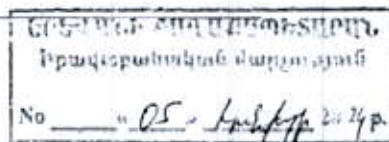 ԵՐԵՎԱՆԻ ՔԱՂԱՔԱՊԵՏԱՐԱՆ
Իրավաբանական վարչության
No « 05 » 2024 թ.